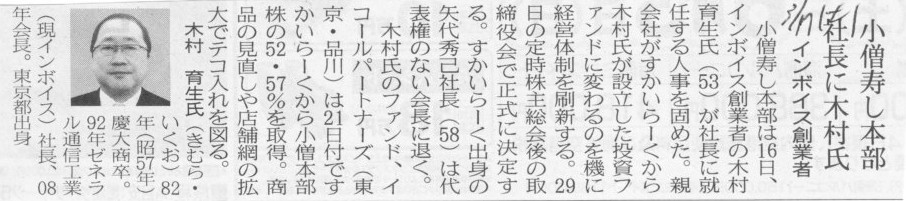 小僧寿し本部
社長に木村氏
インボイス創業者
小僧寿し本部は16日、
インボイス創業者の木村
育生氏（53）が社長に就
任する人事を固めた。親
会社がすかいらーくから
木村氏が設立した投資フ
ァンドに変わるのを機に
経営体制を刷新する。29
日の定時株主総会後の取
締役会で正式に決定す
る。すかいらーく出身の
矢代秀己社長（58）は代
表権のない会長に退く。
木村氏のファンド、イ
コールパートナーズ（東
京・品川）は21日付です
かいらーくから小僧本部
株の52・57％を取得。商
品の見直しや店舗網の拡
大でテコ入れを図る。
木村　育生氏（きむら・
いくお）82
年（昭57年）
慶大商卒。
92年ゼネラ
ル通信工業
（現インボイス）社長、08
年会長。東京都出身